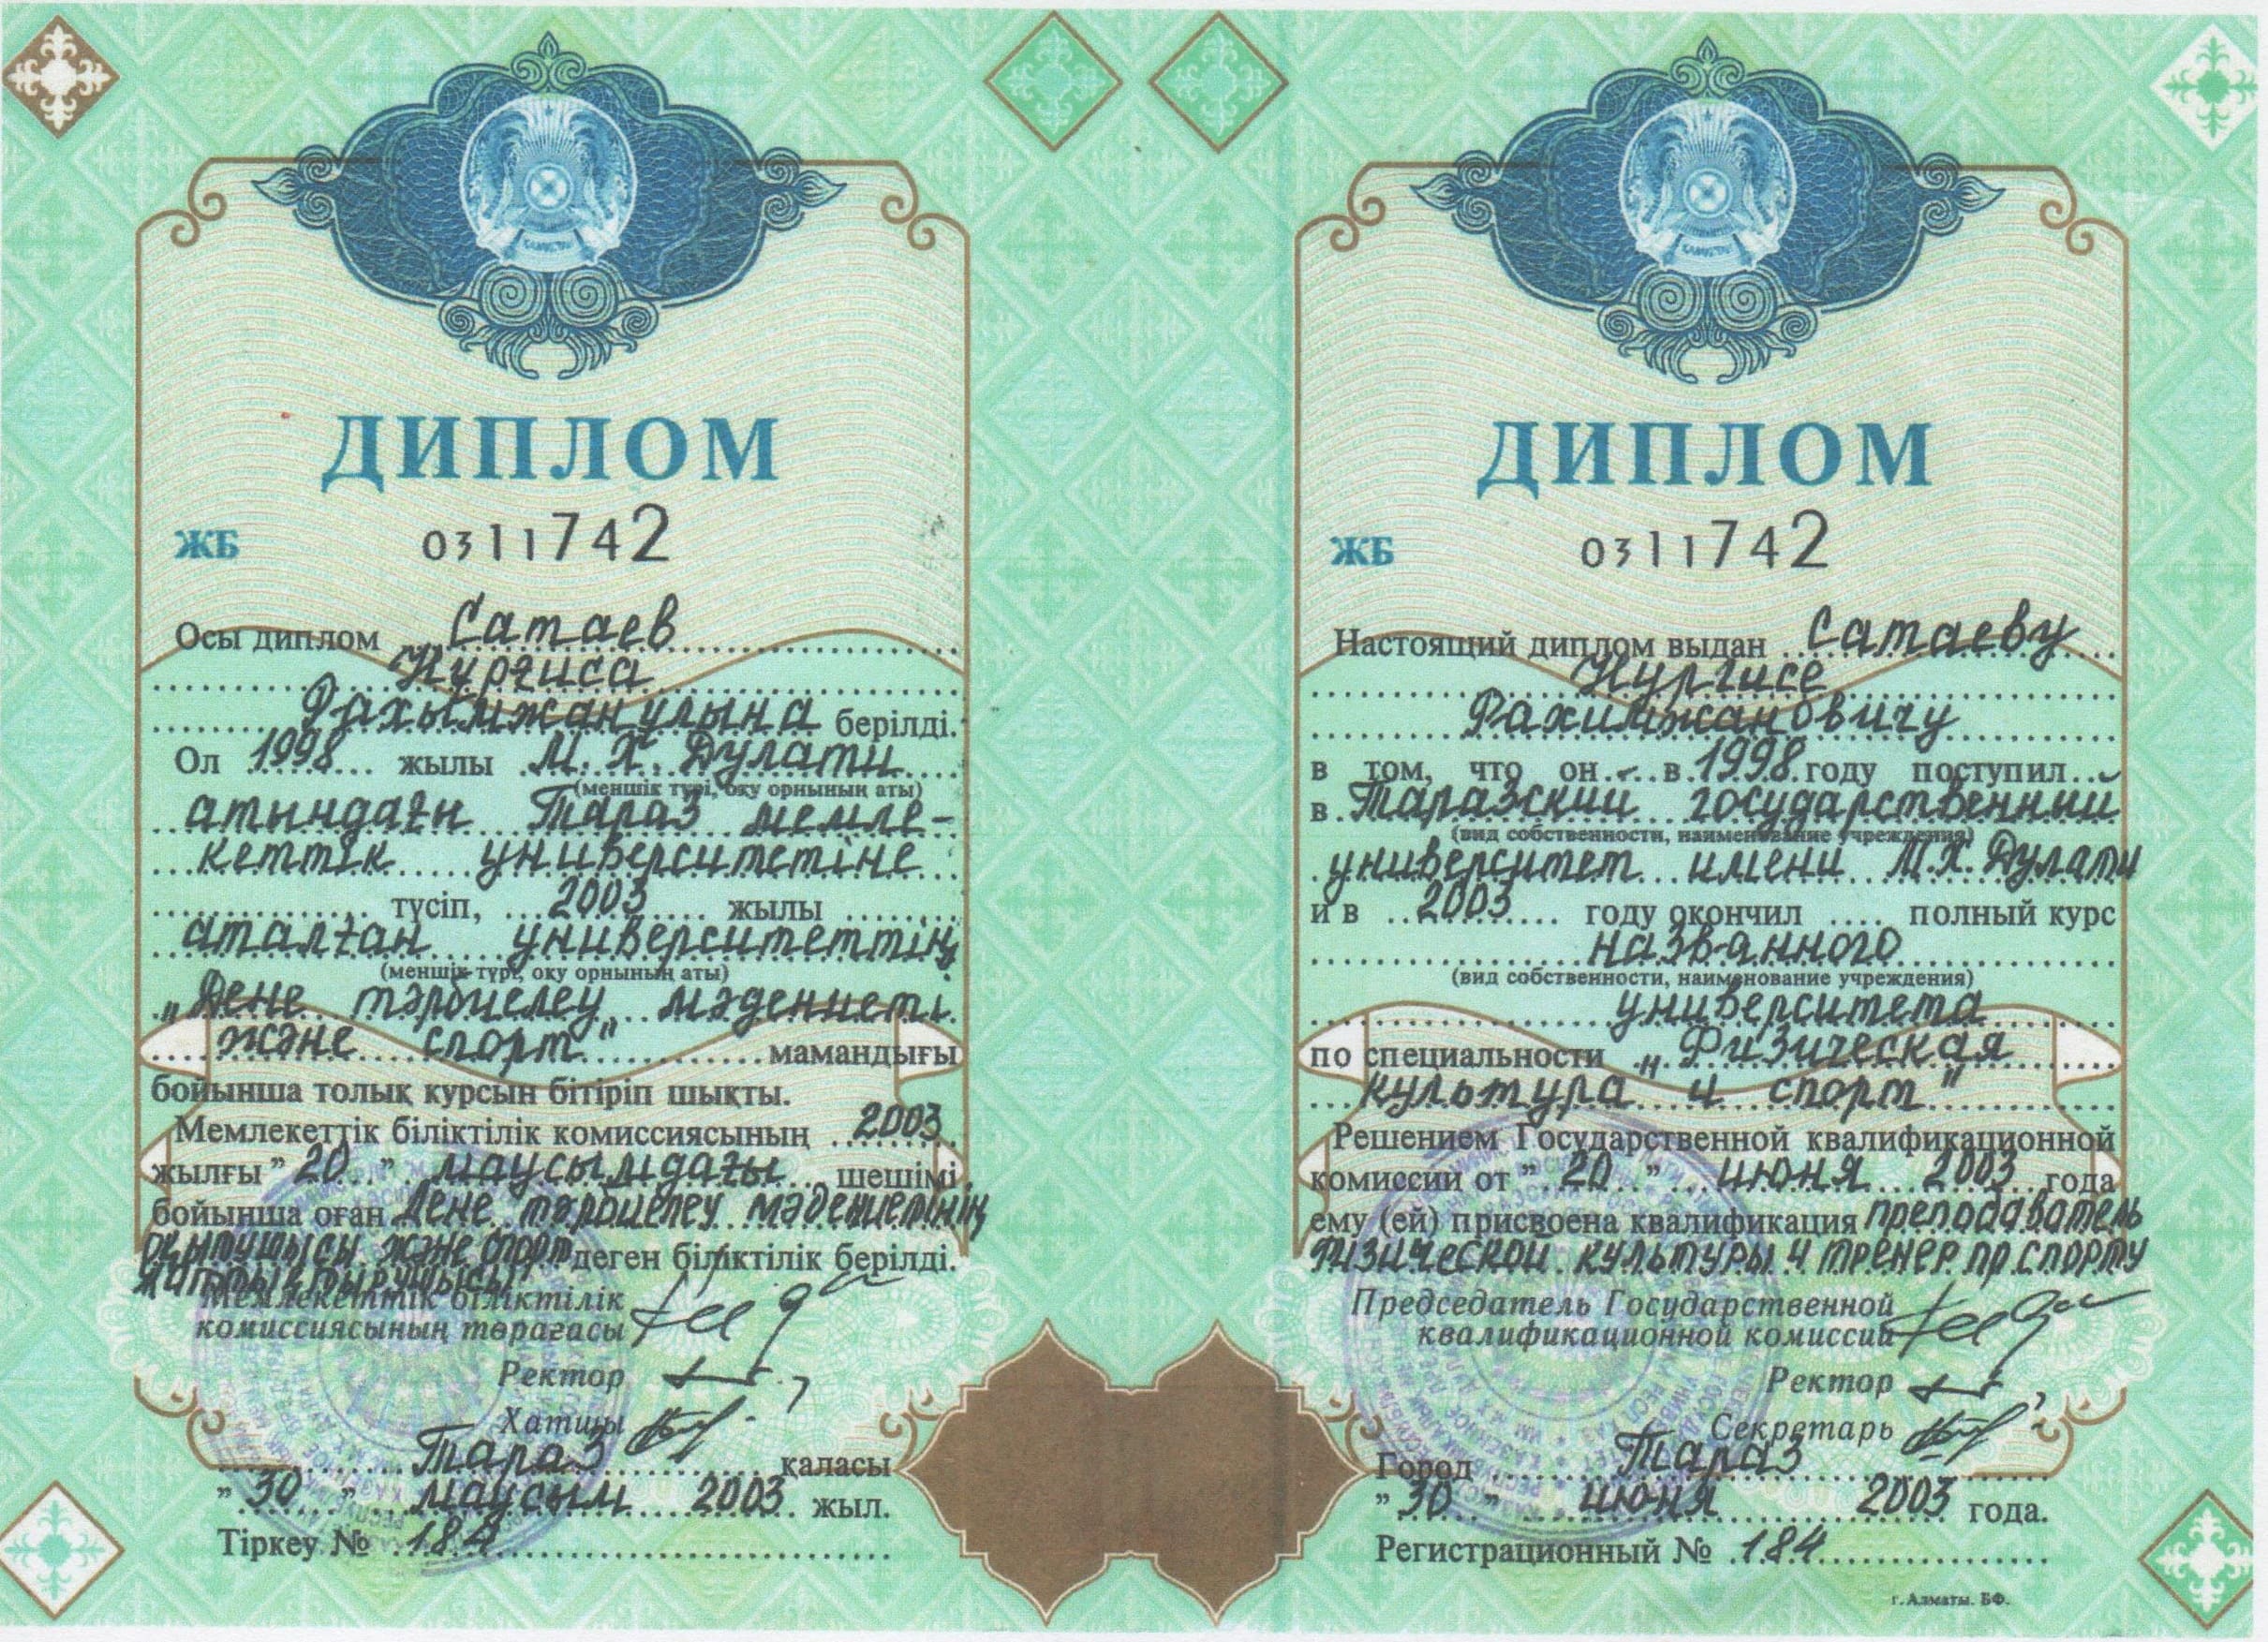 ДИПЛОМ
ЖБ 0311742
Осы диплом Сатаев
Нұрғиса
Рахымжанұлына берілді.
Ол 1998 жылы М.Х. Дулати
(меншік түрі, оқу орнының аты)
атындағы Тараз мемле-
кеттік университетіне
түсіп, 2003 жылы
аталған университеттің
(меншік түрі, оқу орнының аты)
„Дене тәрбиелеу мәдениеті
және спорт" мамандығы
бойынша толық курсын бітіріп шықты.
Мемлекеттік біліктілік комиссиясының 2003
жылғы " 20 " маусымдағы шешімі
бойынша оған Дене тәрбиелеу мәдениетінің
оқытушысы және спорт деген біліктілік берілді.
жаттықтырушысы
Мемлекеттік біліктілік
комиссиясының төрағасы
Ректор
Хатшы
Тараз қаласы
" 30 " маусым 2003 жыл.
Тіркеу № 184
ДИПЛОМ
ЖБ 0311742
Настоящий диплом выдан Сатаеву
Нургисе
Рахимжановичу
в том, что он в 1998 году поступил
в Таразский государственный
(вид собственности, наименование учреждения)
университет имени М.Х. Дулати
и в 2003 году окончил полный курс
названного
(вид собственности, наименование учреждения)
университета
по специальности „Физическая
культура и спорт"
Решением Государственной квалификационной
комиссии от " 20 " июня 2003 года
ему (ей) присвоена квалификация преподаватель
физической культуры и тренер по спорту
Председатель Государственной
квалификационной комиссии
Ректор
Секретарь
Город Тараз
" 30 " июня 2003 года.
Регистрационный № 184
г. Алматы. БФ.